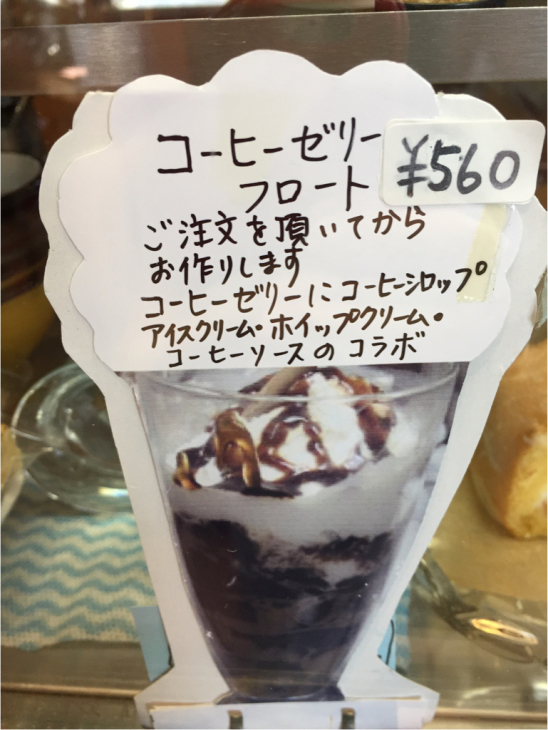 コーヒーゼリー
フロート
¥560
ご注文を頂いてから
お作りします
コーヒーゼリーにコーヒーシロップ
アイスクリーム・ホイップクリーム・
コーヒーソースのコラボ